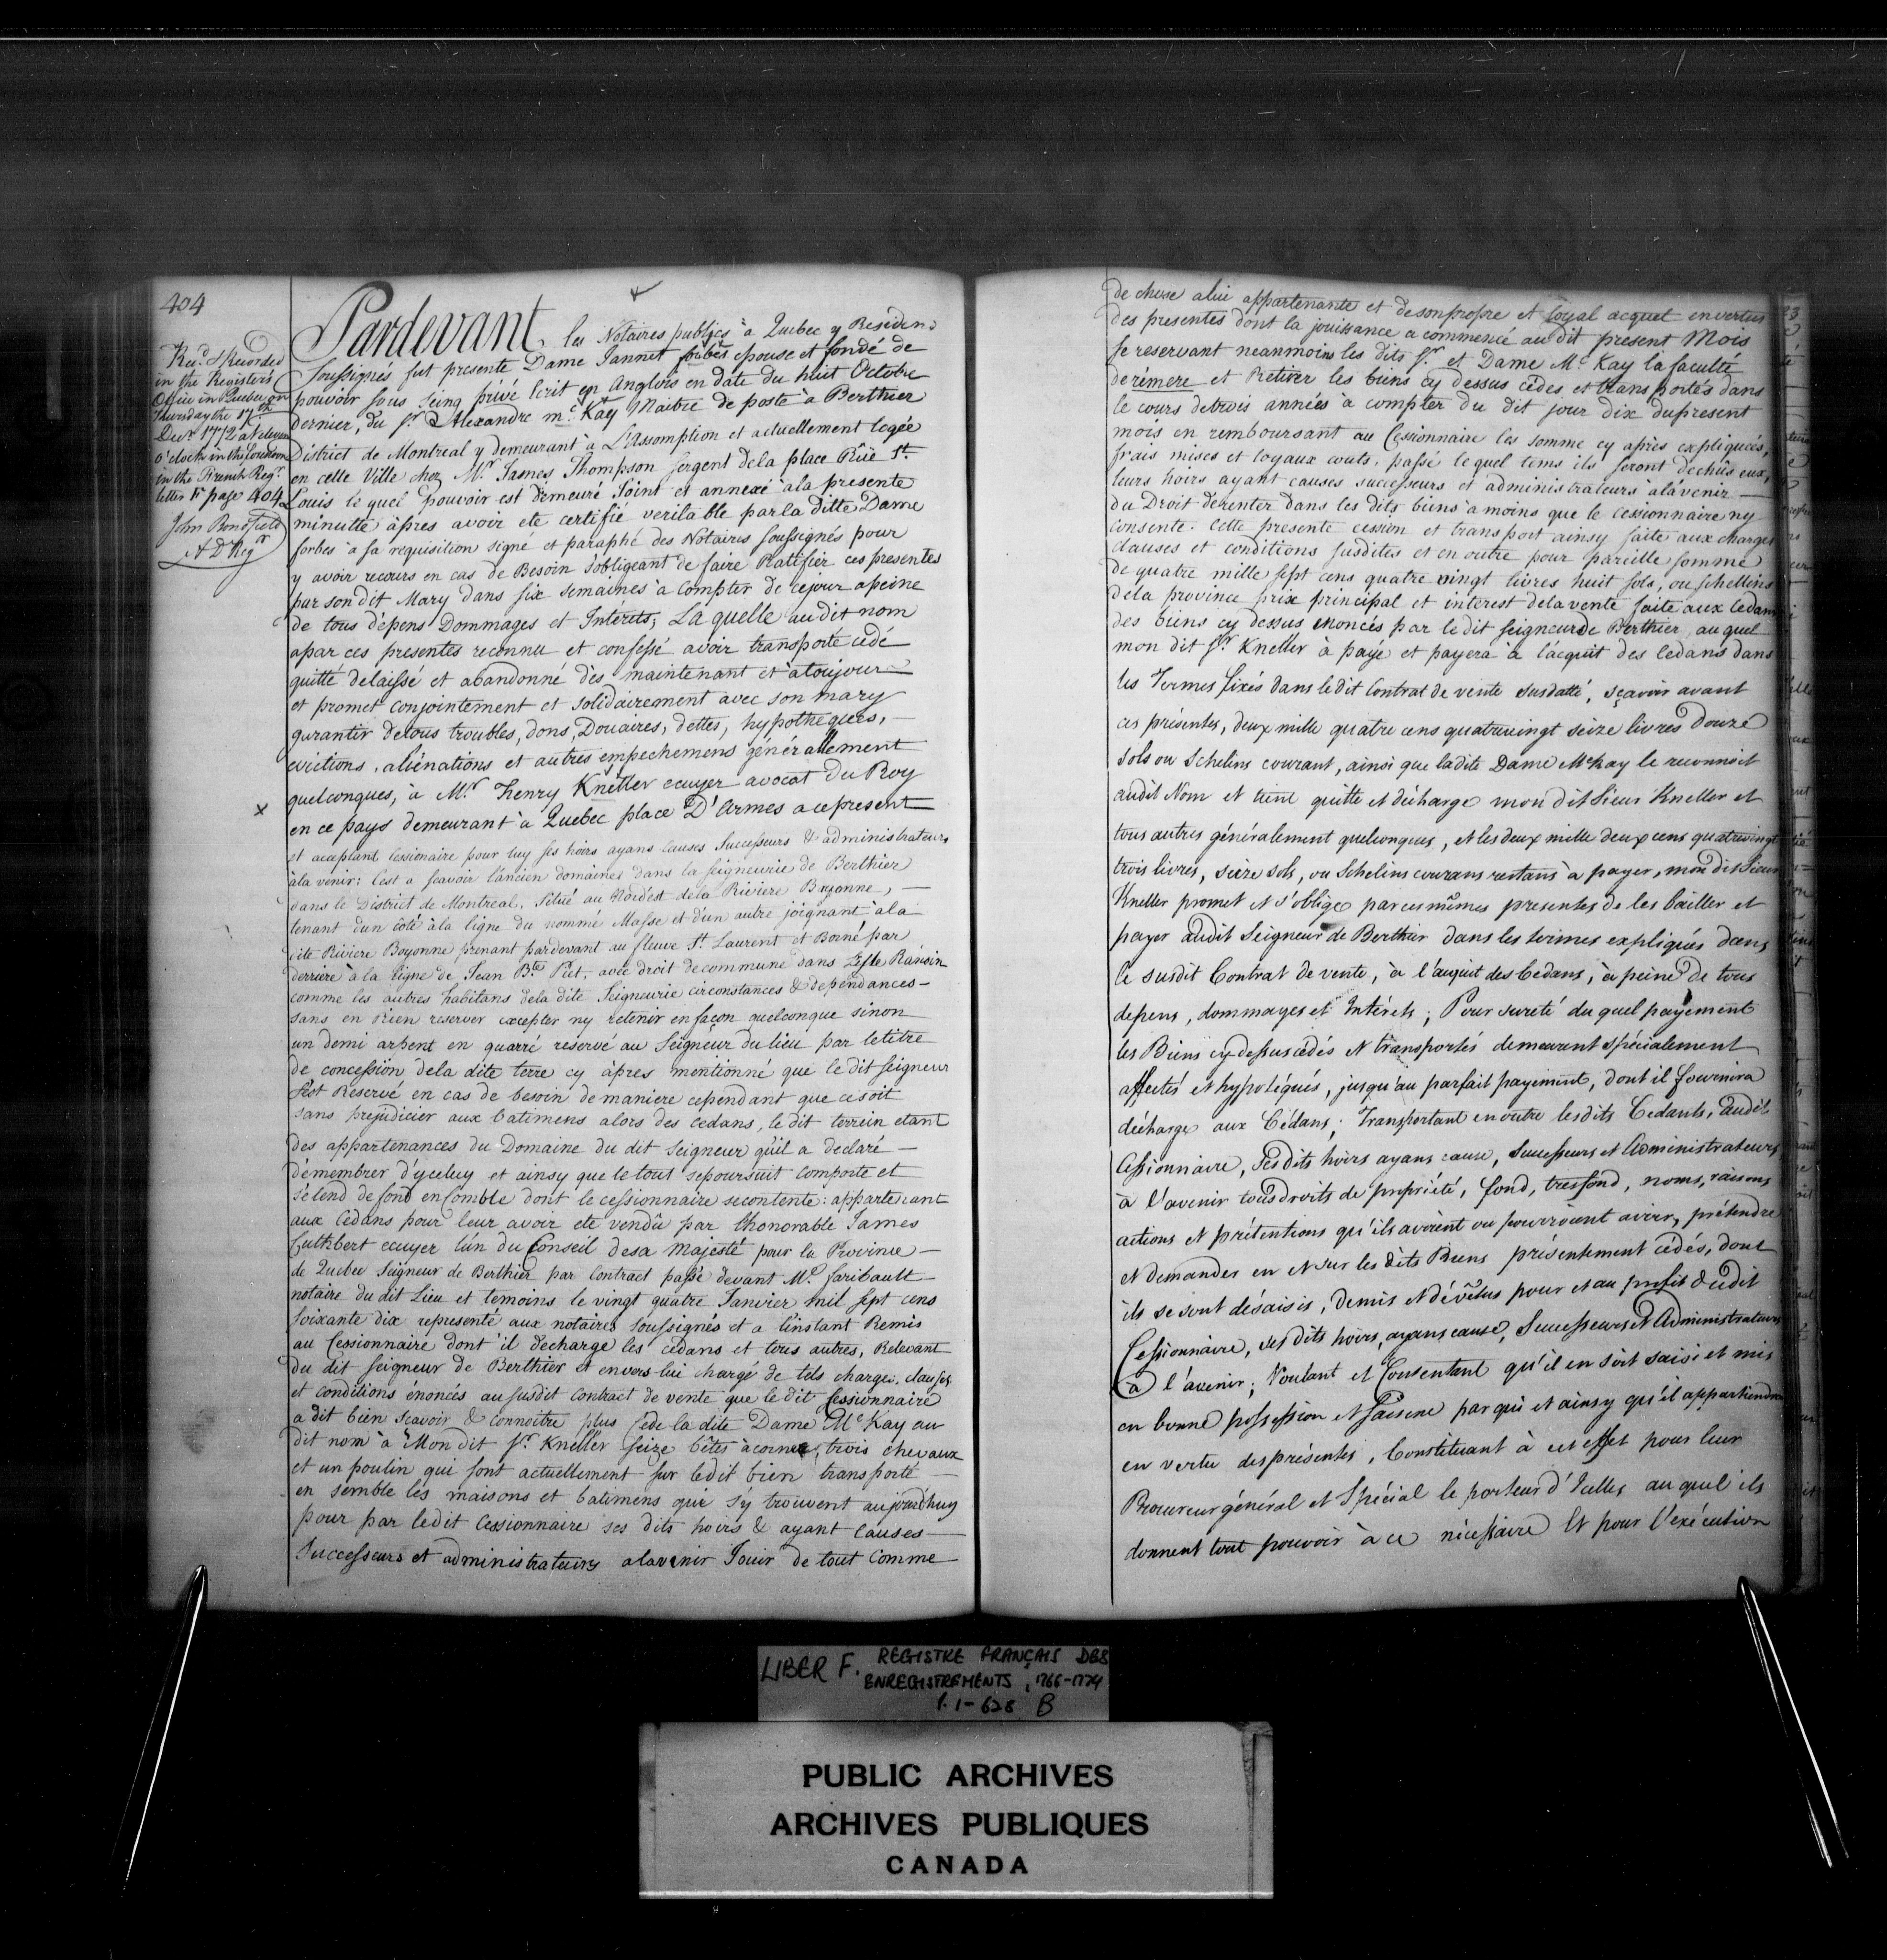 404
Rec.d & Recorded
in the Register's
Office in Quebec on
Thursday the 17th
Decr 1772 at eleven
o'clock in the forenoon
in the French Regr
letter F page 404
John Bonsfield
A D Regr
Pardevant les Notaires publics à Quebec y Residens
Soussignés fut presente Dame Jannet forbes epouse et fondé de
pouvoir sous seing privé Ecrit en Anglois en date du huit Octobre
dernier, du Sr Alexandre mc Kay Maitre de poste à Berthier
District de Montreal y demeurant à L'Assomption et actuellement logée
en cette Ville chez Mr James Thompson sergent dela place Rüe St
Louis le quel pouvoir est demeuré Joint et annexé àla presente
minutte àpres avoir ete certifié veritable par la ditte Dame
forbes à sa requisition signé et paraphé des Notaires soussignés pour
y avoir recours en cas de Besoin s'obligeant de faire Ratifier ces presentes
par son dit Mary dans six semaines à compter de cejour apeine
de tous dépens Dommages et Interets; La quelle audit nom
apar ces presentes reconnu et confessé avoir transporté cedé
quitté delaissé et abandonné dès maintenant et àtoujour
et promet conjointement et solidairement avec son mary
garantir detous troubles, dons, Douaires, dettes, hypotheques,
evictions, aliénations et autres empechemens générallement
quelconques, à Mr Henry Kneller ecuyer avocat Du Roy
en ce pays demeurant à Quebec place D'Armes acepresent
x
et acceptant Cessionaire pour luy ses hoirs ayans Causes Successeurs & administrateurs
àla venir: C'est a scavoir l'ancien domaine dans la seigneurie de Berthier
dans le District de Montreal, Situé au Nordest dela Riviere Bayonne,
tenant dun côté àla ligne du nommé Masse et d'un autre joignant àla
dite Riviere Bayonne prenant pardevant au fleuve St Laurent et Borné par
derriere à la ligne de Jean Bte Piet, avec droit decommune dans L'isle Randin
comme les autres habitans dela dite Seigneurie circonstances & dependances
sans en Rien reserver excepter ny retenir en façon quelconque sinon
un demi arpent en quarré reservé au Seigneur du lieu par letitre
de concession dela dite terre cy àpres mentionné que ledit seigneur
s'est Reservé en cas de besoin demaniere cependant que cesoit
sans prejudicier aux batimens alors des cedans, le dit terrein etant
des appartenances du Domaine du dit Seigneur qu'il a declaré
démembrer d'yceluy et ainsy que le tout sepoursuit Comporte et
s'étend de fond en Comble dont le cessionnaire secontente: appartenant
aux Cedans pour leur avoir ete vendû par l'honorable James
Cuthbert ecuyer l'ún du Conseil desa Majesté pour la Province
de Quebec Seigneur de Berthier par Contract passé devant Me faribault
notaire du dit Lieu et temoins le vingt quatre Janvier mil sept cens
Soixante dix representé aux notaires Soussignés et a linstant Remis
au Cessionnaire dont il decharge les cédans et tous autres, Relevant
du dit seigneur de Berthier et envers lui chargé de tels charges, clauses
et conditions énoncés au susdit Contract de vente que le dit Cessionnaire
a dit bien scavoir & connoitre plus Cede la dite Dame Mc Kay au
dit nom à Mon dit Sr Kneller seize bêtes àcornes, trois chevaux
et un poulin qui sont actuellement sur ledit bien transporté
en semble les maisons et batimens qui s'y trouvent aujourd'huy
pour par ledit Cessionnaire ses dits hoirs & ayant Causes
Successeurs et administrateurs alavenir Jouir de tout Comme
de chose alui appartenante et desonpropre et loyal acquet envertus
des presentes dont la jouissance a commencé audit present Mois
se reservant neanmoins les dits Sr et Dame Mc Kay la faculté
derémere et Retirer les biens cy dessus cèdes et transportés dans
le cours detrois années à compter du dit jour dix dupresent
mois en remboursant au Cessionnaire les somme cy après expliquées,
frais mises et loyaux couts, passé lequel tems ils seront dechûs eux,
leurs hoirs ayant causes successeurs et administrateurs àlàvenir
du Droit dérenter dans les dits biens àmoins que le cessionnaire ny
Consente. cette presente cession et transport ainsy faite aux charges
clauses et conditions susdites et en outre pour pareille somme
de quatre mille sept cens quatre vingt livres huit sols, ou schellins
dela province prix principal et interest dela vente faite aux Cedans
des biens cy dessus enoncés par le dit seigneurde Berthier, auquel
mon dit Sr Kneller à payé et payera à lacquit des Cedans dans
les Termes fixés dans le dit Contrat de vente susdatté, sçavoir avant
ces présentes, deux mille quatre cens quatrevingt seize livres Douze
Sols ou Schelins courant, ainsi que ladite Dame McKay le reconnoit
audit Nom et tient quitte et décharge mon dit Sieur Kneller et
tous autres généralement quelconques, et les deux mille deux cens quatrevingt
trois livres, sieze sols, ou Schelins courans restans à payer, mon dit Sieur
Kneller promet et s'oblige par ces mêmes presentes de les bailler et
payer audit Seigneur de Berthier dans les termes expliqués dans
le susdit Contrat de vente, à l'acquit des Cedans, à peine de tous
depens, dommages et Intérets; Pour sureté du quel payement
les Biens cydessus cédés et transportés demeurent spécialement
affectés et hypotéqués, jusqu'au parfait payement, dont il fournira
décharge aux Cédans; Transportant en outre lesdits Cedants, audit
Cessionnaire, ses dits hoirs ayans cause, Successeurs et Administrateurs
à l'avenir tousdroits de propriété, fond, tresfond, noms, raisons
actions et prétentions qu'ils avoient ou pourroient avoir, prétendre
et demander en et sur les dits Biens présentement cédés, dont
ils se sont désaisis, demis et dévêtus pour et au profit dudit
Cessionnaire, ses dits hoirs, ayans cause, Successeurs et Administrateurs
à l'avenir; Voulant et Consentant qu'il en soit saisi et mis
en bonne possession et saisine par qui et ainsy qu'il appartiendra
en vertu desprésentes, Constituant à cet effet pour leur
Procureur général et Spécial le porteur d'Icelles auquel ils
donnent tout pouvoir à ce nécessaire Et pour l'exécution
LIBER F. REGISTRE FRANÇAIS DES
ENREGISTREMENTS, 1766-1774
P. 1-628 B
PUBLIC ARCHIVES
ARCHIVES PUBLIQUES
CANADA